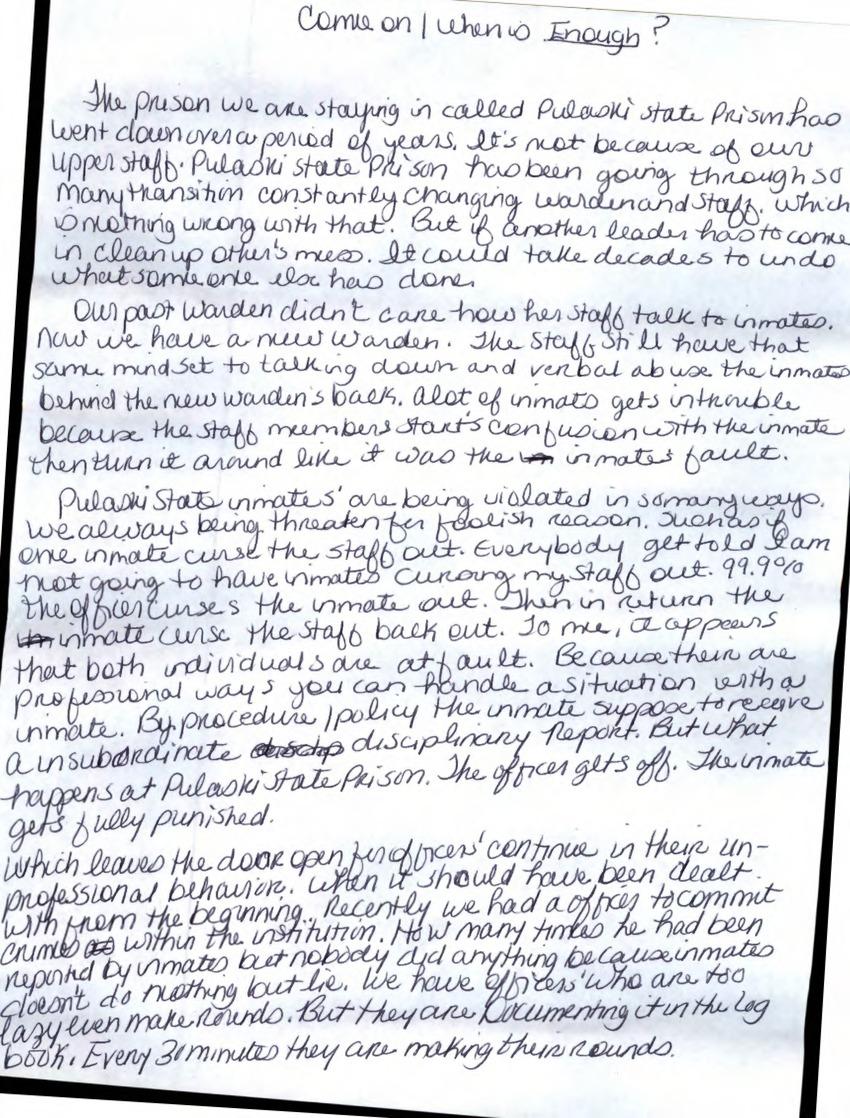 Come on / When is Enough?
The prison we are staying in called Pulaski State Prison has
went down over a period of years. It's not because of our
upper staff. Pulaski State Prison has been going through so
many transition constantly changing warden and staff. Which
is nothing wrong with that. But if another leader has to come
in clean up other's mess. It could take decades to undo
what someone else has done.
Our past warden didn't care how her staff talk to inmates.
Now we have a new Warden. The staff still have that
same mindset to talking down and verbal abuse the inmates
behind the new warden's back. Alot of inmats gets introuble
because the staff members start's confusion with the inmate
then turn it around like it was the inmate's fault.
Pulaski State inmates' are being violated in so many ways.
We always being threaten for foolish reason. Such as if
one inmate curse the staff out. Everybody get told I am
not going to have inmates cursing my staff out. 99.9%
the officer curse's the inmate out. Then in return the
inmate curse the staff back out. To me, it appears
that both individuals are at fault. Because their are
professional ways you can handle a situation with a
inmate. By procedure / policy the inmate suppose to receive
a insubordinate disciplinary Report. But what
happens at Pulaski State Prison. The officer gets off. The inmate
gets fully punished.
Which leaves the door open for officers' continue in their un-
professional behavior. When it should have been dealt
with from the beginning. Recently we had a officer to commit
crimes within the institution. How many times he had been
reported by inmates but nobody did anything because inmates
doesn't do nothing but lie. We have officers' who are too
lazy even make rounds. But they are Documenting it in the log
book. Every 30 minutes they are making their rounds.